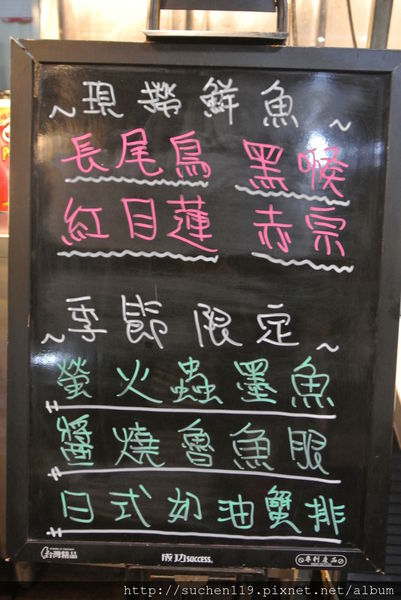 ~現撈鮮魚~
長尾鳥 黑喉
紅目蓮 赤宗
~季節限定~
螢火蟲墨魚
醬燒魯魚眼
日式奶油蟹排
台灣精品 成功SUCCESS. 專利產品
http://suchen119.pixnet.net/album